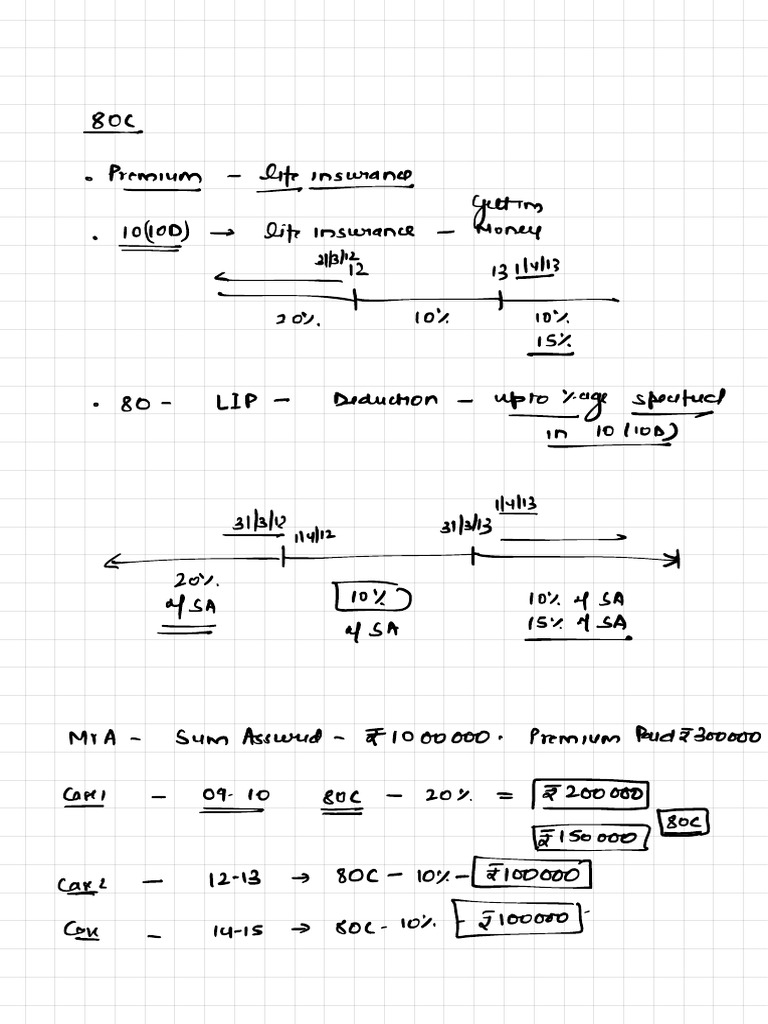 80C
• Premium - life insurance
• 10(10D) → life insurance - Getting Money
31/3/12 12 13 1/4/13
20% 10% 10%
15%
• 80 - LIP - Deduction - upto %age specified
in 10(10D)
31/3/12 1/4/12 31/3/13 1/4/13
20% 10% 10% of SA
of SA of SA 15% of SA
Mr A - Sum Assured - ₹1000000. Premium Paid ₹300000
Case 1 - 09-10 80C - 20% = ₹200000
₹150000 80C
Case 2 - 12-13 → 80C - 10% - ₹100000
Case - 14-15 → 80C - 10% - ₹100000